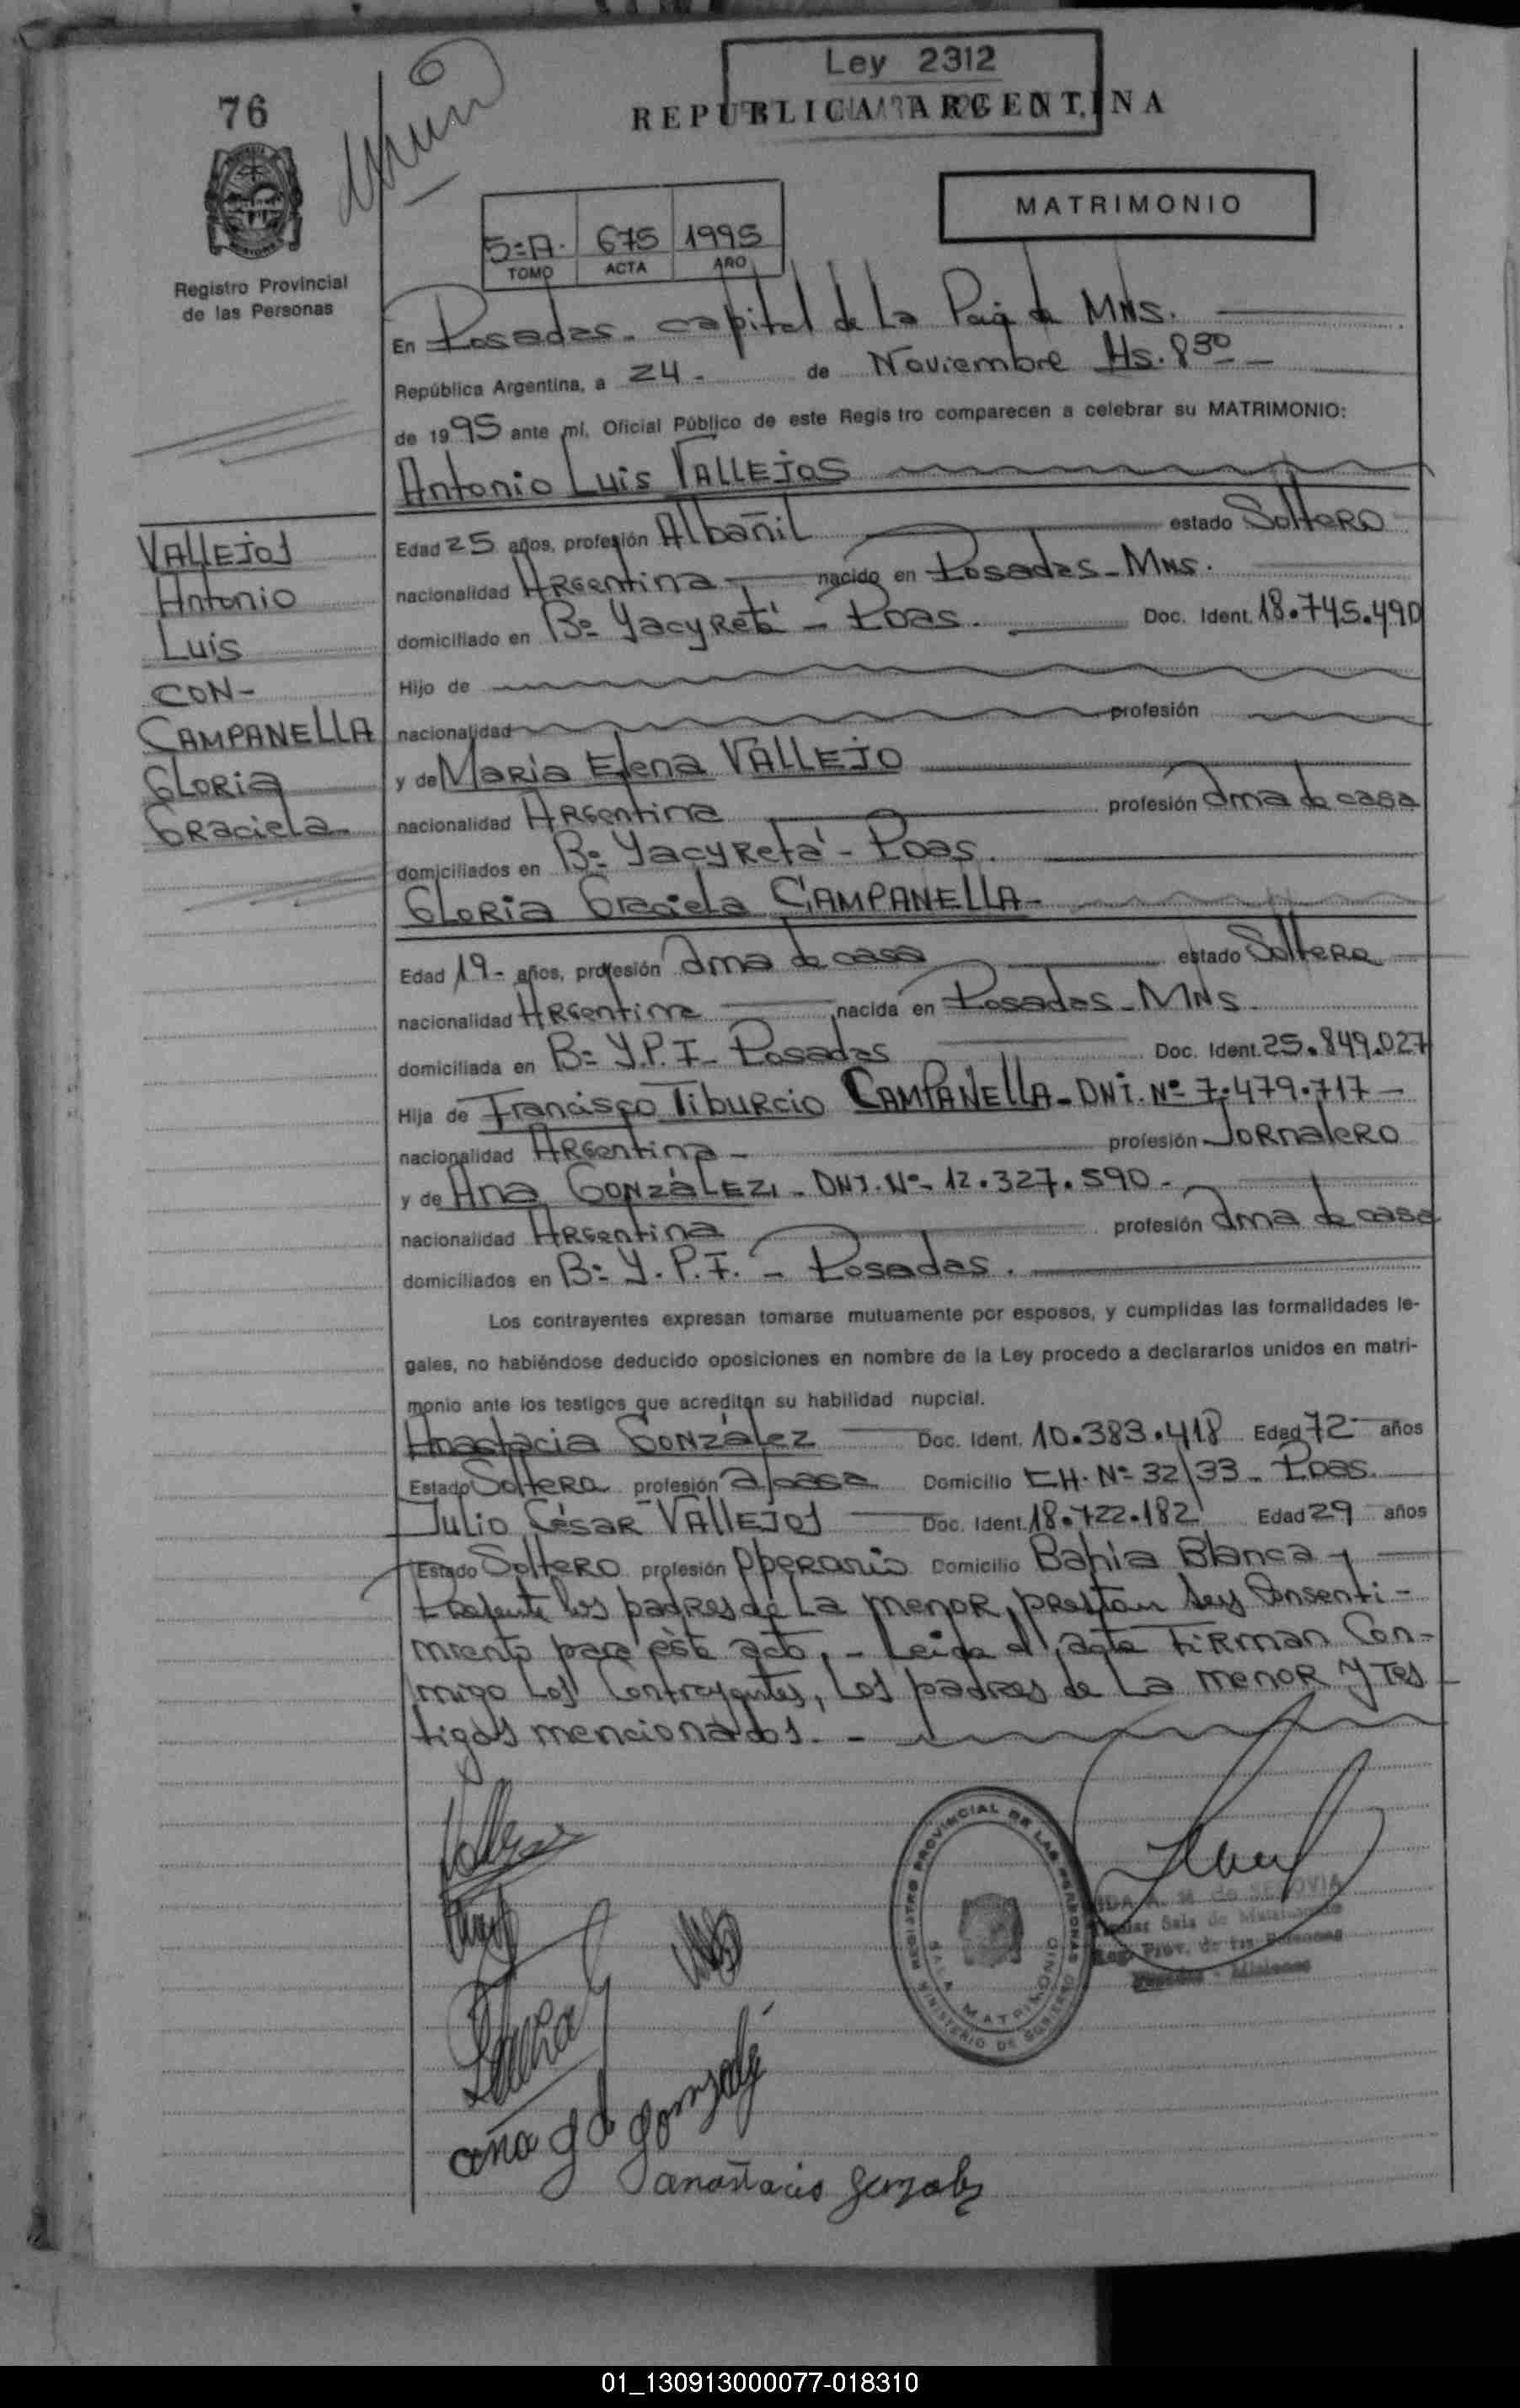 Ley 2312
76
REPUBLICA ARGENTINA
MATRIMONIO
5=A. 675 1995
TOMO ACTA AÑO
Registro Provincial
de las Personas
En Posadas. capital de La Pcia de MNS.
República Argentina, a 24 - de Noviembre Hs. 8 30
de 1995 ante mí, Oficial Público de este Registro comparecen a celebrar su MATRIMONIO:
Antonio Luis VALLEJOS
VALLEJOS
Antonio
Luis
CON-
CAMPANELLA
GLORIA
GRACIELA
Edad 25 años, profesión Albañil estado Soltero
nacionalidad Argentina nacido en Posadas - MNS.
domiciliado en Bº Yacyretá - Pdas. Doc. Ident. 18.745.490
Hijo de
nacionalidad profesión
y de Maria Elena VALLEJO
nacionalidad Argentina profesión Ama de casa
domiciliados en Bº Yacyretá - Pdas.
Gloria Graciela CAMPANELLA-
Edad 19- años, profesión Ama de casa estado Soltera
nacionalidad Argentina nacida en Posadas - MNS
domiciliada en Bº Y.P.F- Posadas Doc. Ident. 25.849.027
Hija de Francisco Tiburcio CAMPANELLA - DNI. Nº 7.479.717 -
nacionalidad Argentina - profesión Jornalero
y de Ana GONZÁLEZ, - DNI. Nº- 12.327.590 -
nacionalidad Argentina profesión Ama de casa
domiciliados en Bº Y.P.F. - Posadas.
Los contrayentes expresan tomarse mutuamente por esposos, y cumplidas las formalidades le-
gales, no habiéndose deducido oposiciones en nombre de la Ley procedo a declararlos unidos en matri-
monio ante los testigos que acreditan su habilidad nupcial.
Anastacia González Doc. Ident. 10.383.418 Edad 72 años
Estado Soltera profesión a/casa Domicilio CH. Nº 32/33 - Pdas.
Julio César VALLEJOS Doc. Ident. 18.722.182 Edad 29 años
Estado Soltero profesión Operario Domicilio Bahía Blanca -
Presente los padres de La menor, prestan sus Consenti-
miento para éste acto, - Leida el acta firman Con-
migo Los Contrayentes, Los padres de La menor y Tes
tigos mencionados. -
REGISTRO PROVINCIAL DE LAS PERSONAS
SALA MATRIMONIO
MINISTERIO DE GOBIERNO
A. M de SEGOVIA
Sala de Matrimonio
Reg. Prov. de las Personas
Posadas - Misiones
ana g de gonzalez
anastacia gonzalez
01_130913000077-018310